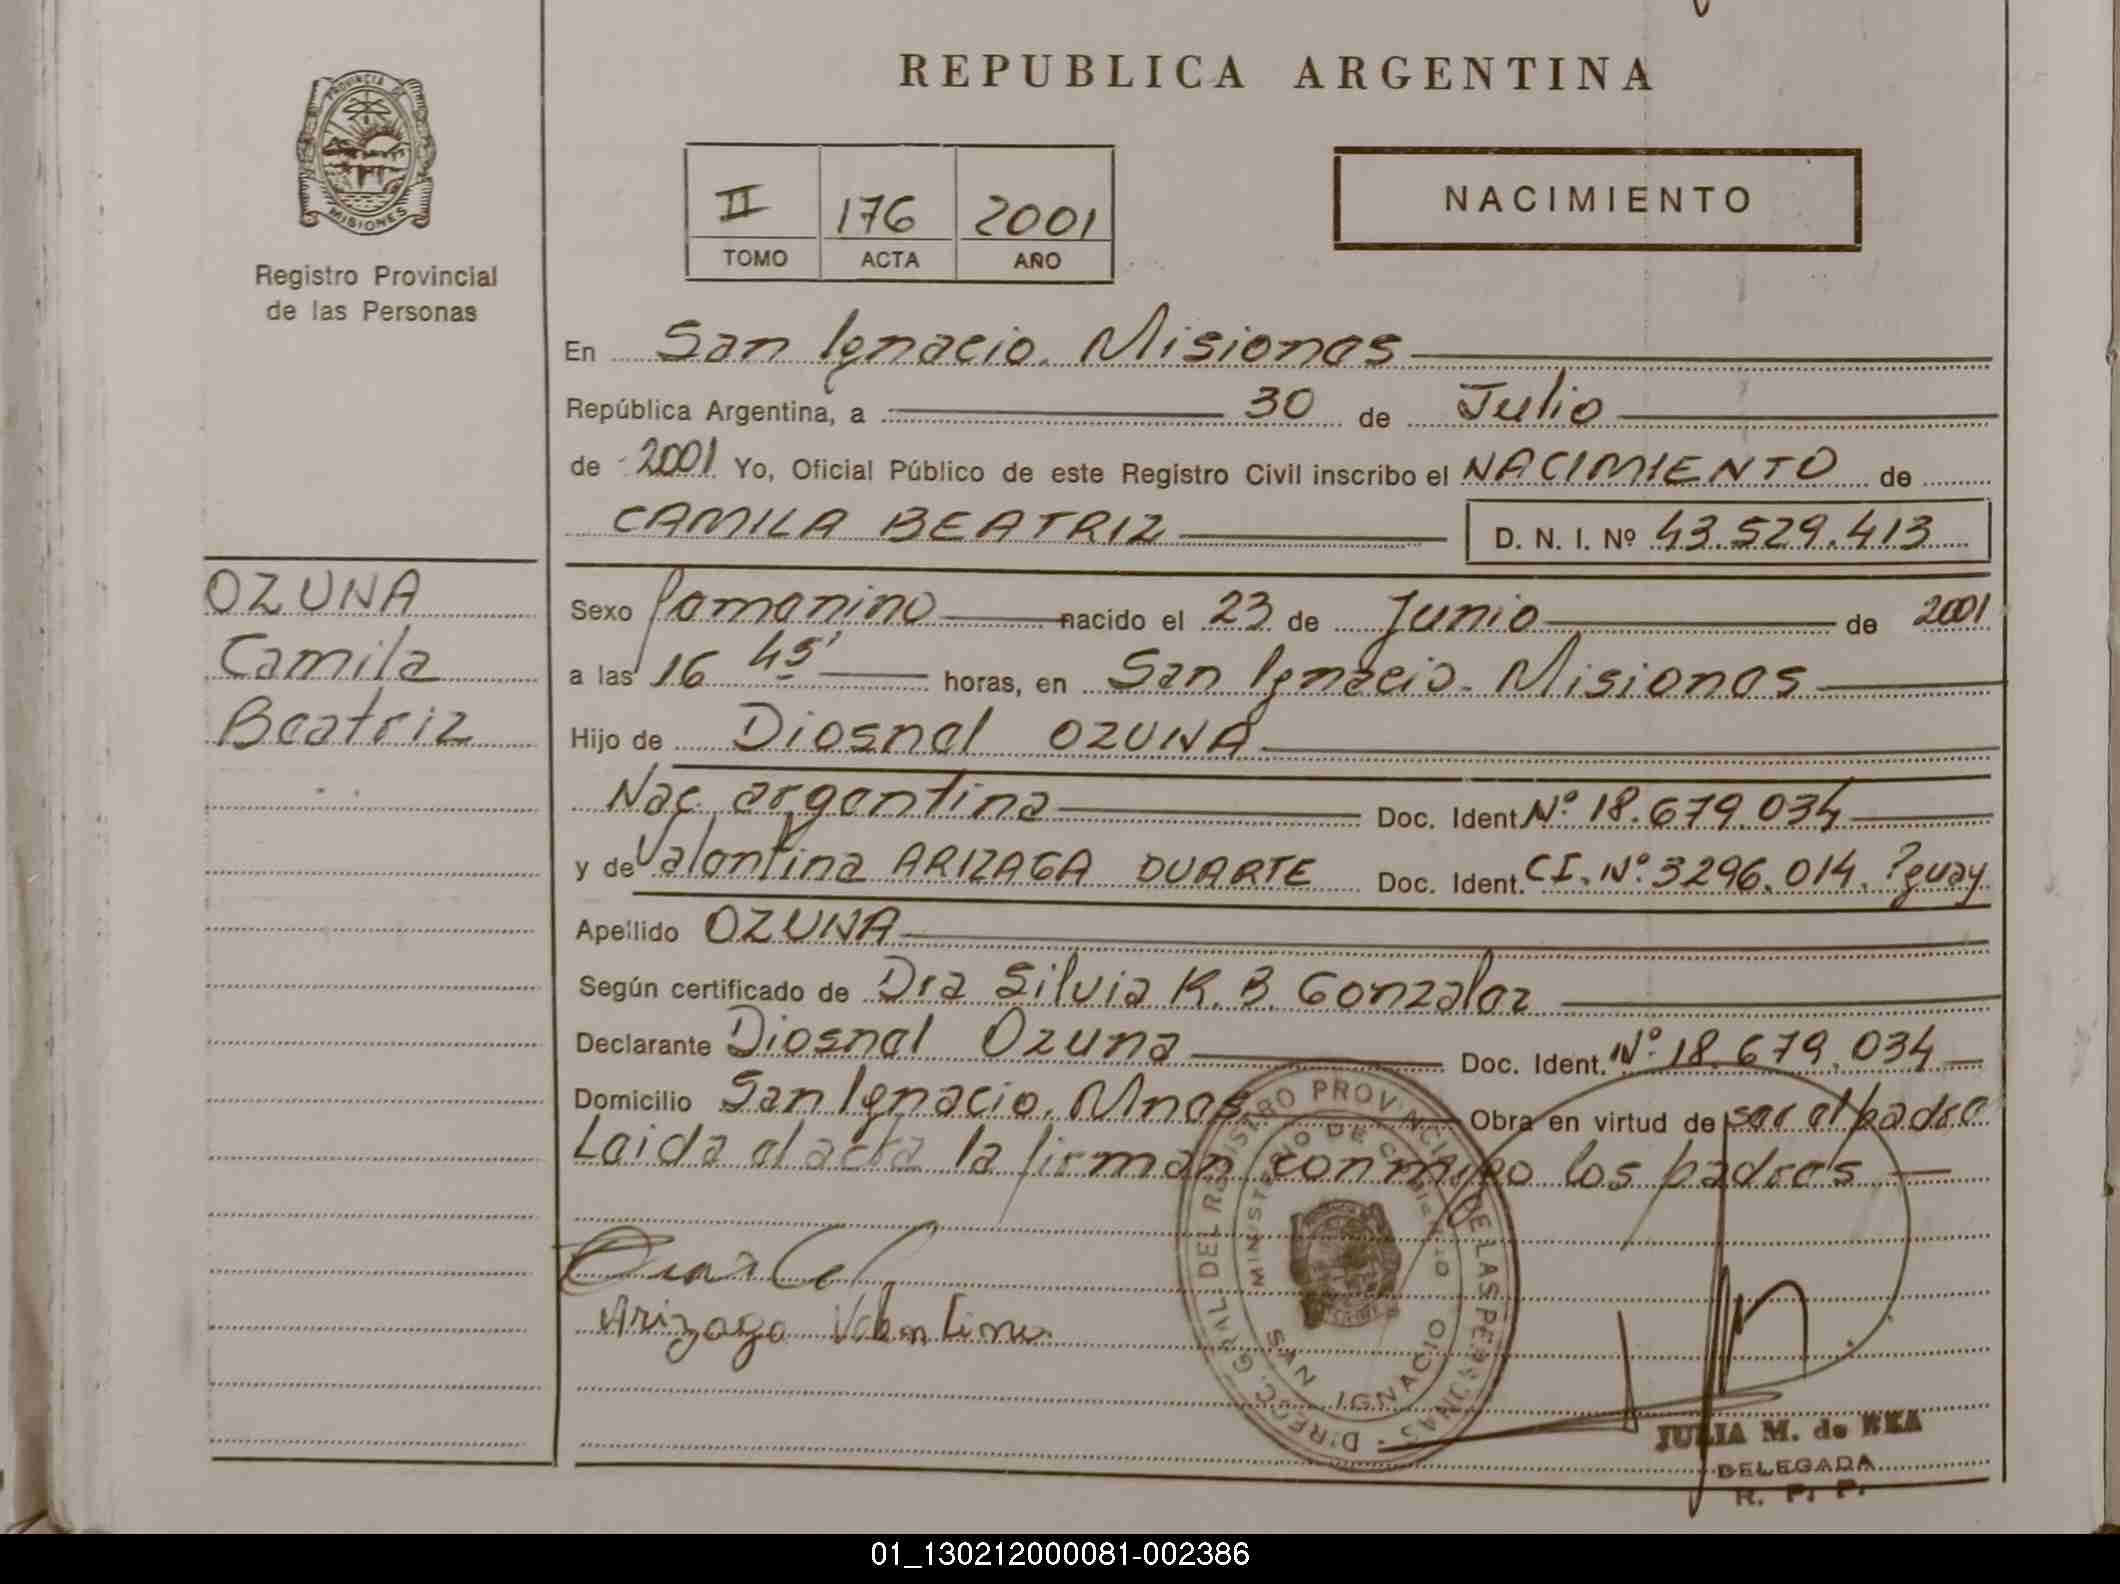 REPUBLICA ARGENTINA
PROVINCIA DE
MISIONES
Registro Provincial
de las Personas
II 176 2001
TOMO ACTA AÑO
NACIMIENTO
En San Ignacio. Misiones
República Argentina, a 30 de Julio
de 2001 Yo, Oficial Público de este Registro Civil inscribo el NACIMIENTO de
CAMILA BEATRIZ D. N. I. Nº 43.529.413
OZUNA
Camila
Beatriz
Sexo femenino nacido el 23 de Junio de 2001
a las 16 45' horas, en San Ignacio. Misiones
Hijo de Diosnel OZUNA
Nac. argentina Doc. Ident. Nº 18.679.034
y de Valentina ARIZAGA DUARTE Doc. Ident. CI. Nº 3296.014. Pguay
Apellido OZUNA
Según certificado de Dra Silvia R. B. Gonzalez
Declarante Diosnel Ozuna Doc. Ident. Nº 18.679.034
Domicilio San Ignacio. Mnes Obra en virtud de ser el padre
Leida el acta la firman conmigo los padres
Arizaga Valentina
DIREC. GRAL DEL REGISTRO PROVINCIAL DE LAS PERSONAS
MINISTERIO DE GOBIERNO
SAN IGNACIO
JULIA M. de
DELEGADA
R. P. P.
01_130212000081-002386